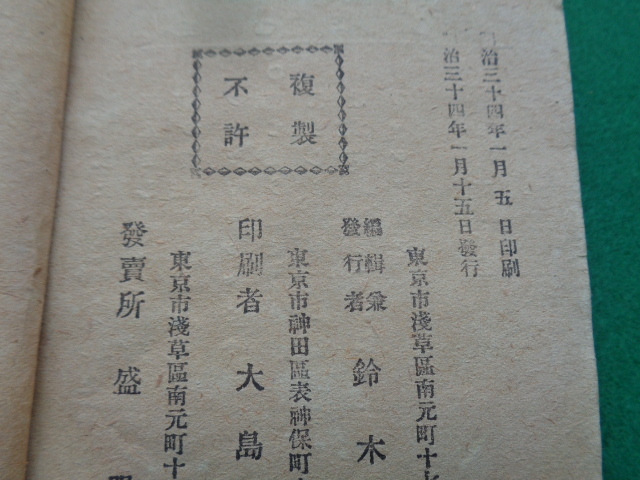 治三十四年一月五日印刷
治三十四年一月十五日發行
複製
不許
東京市淺草區南元町十七
編輯兼
發行者
鈴木
東京市神田區表神保町
印刷者大島
東京市淺草區南元町十
發賣所盛